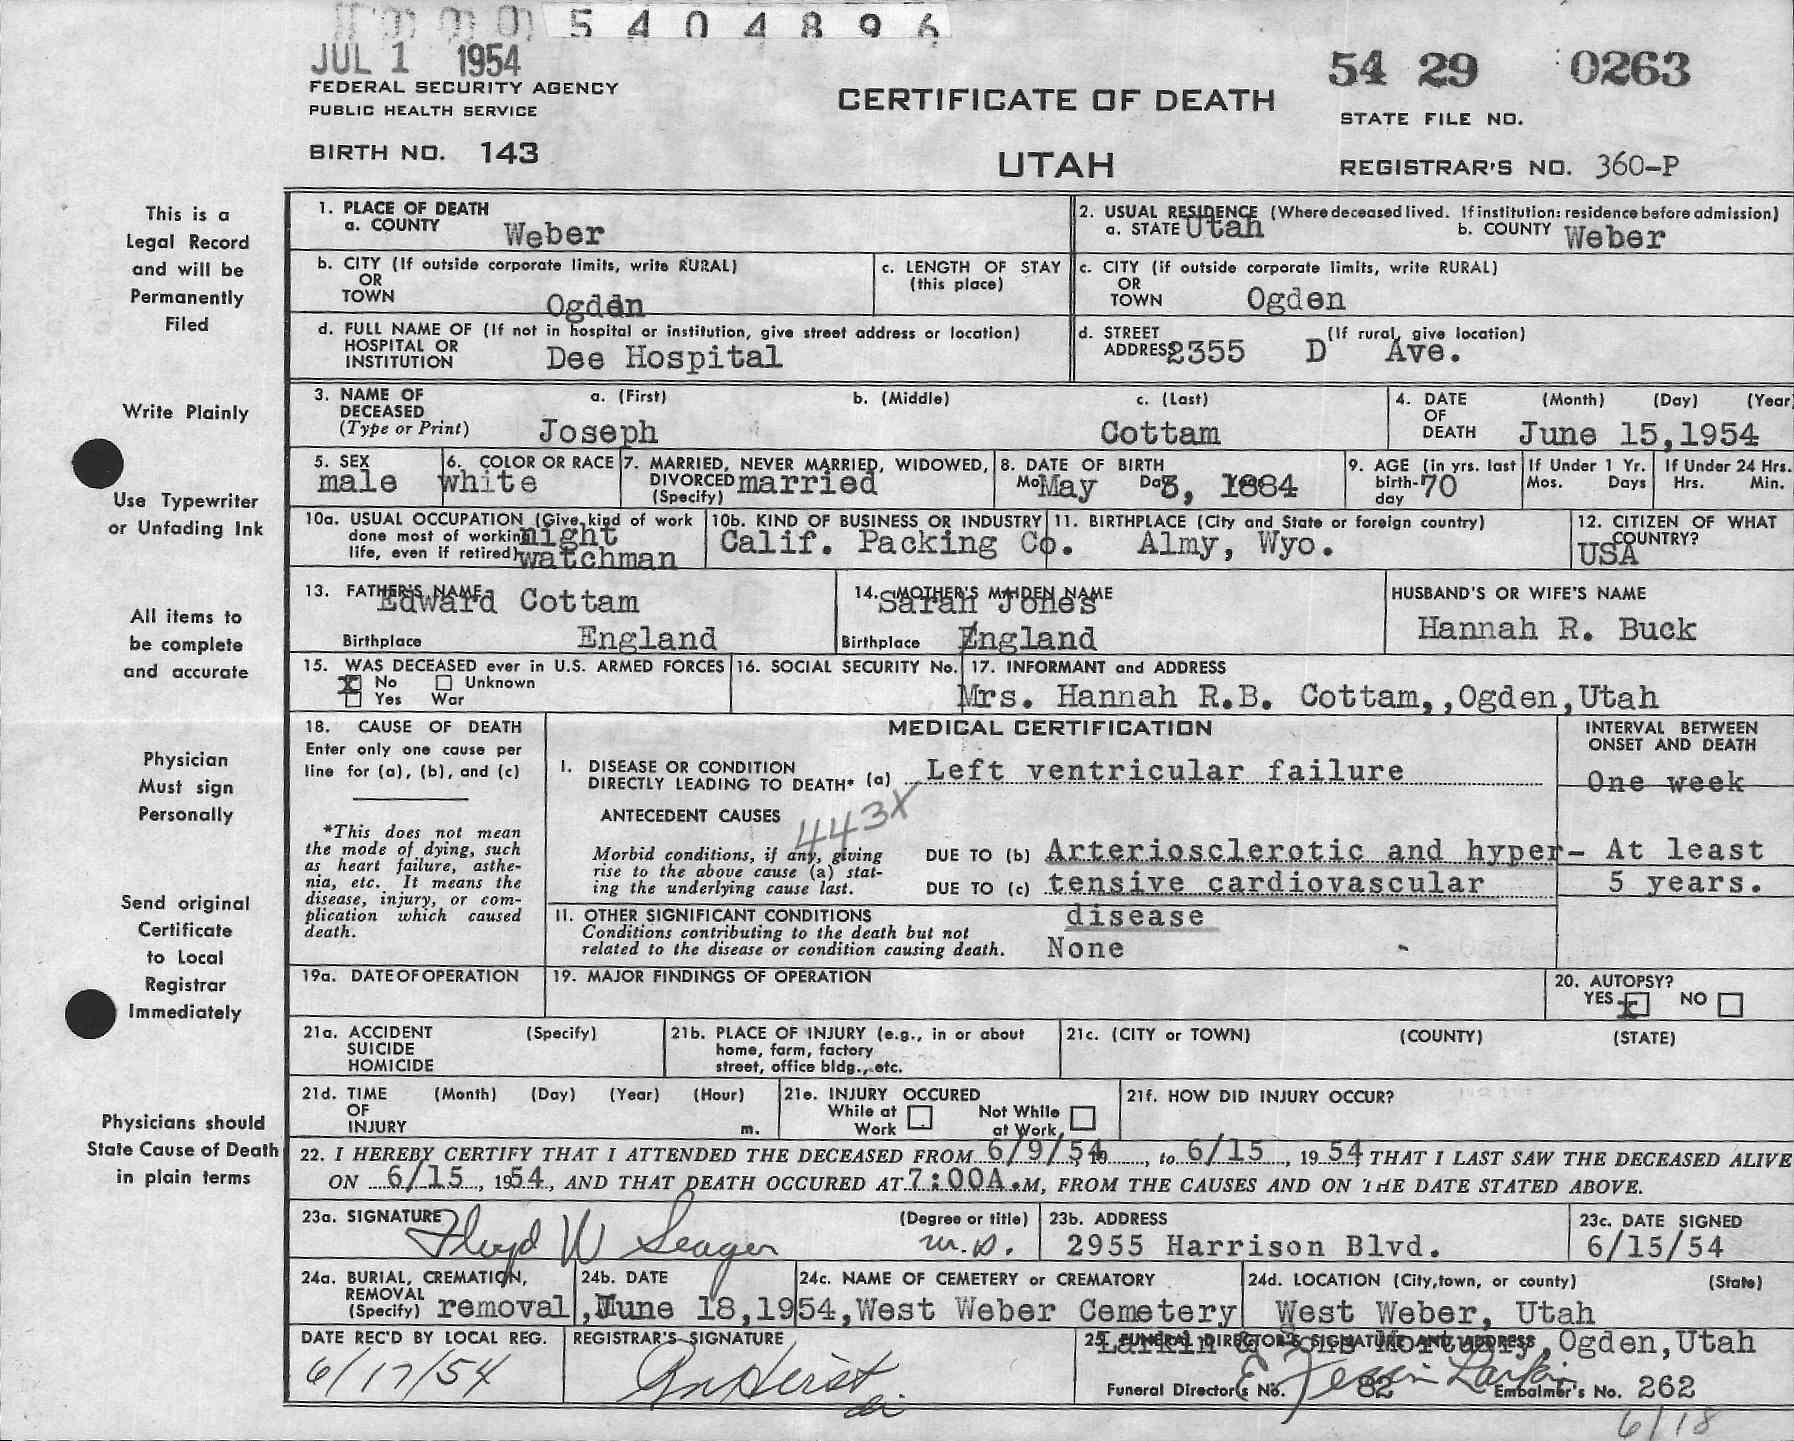 5404896
JUL 1 1954
54 29 0263
FEDERAL SECURITY AGENCY
PUBLIC HEALTH SERVICE
CERTIFICATE OF DEATH
STATE FILE NO.
BIRTH NO. 143
UTAH
REGISTRAR'S NO. 360-P
This is a
Legal Record
and will be
Permanently
Filed
Write Plainly
Use Typewriter
or Unfading Ink
All items to
be complete
and accurate
Physician
Must sign
Personally
Send original
Certificate
to Local
Registrar
Immediately
Physicians should
State Cause of Death
in plain terms
1. PLACE OF DEATH
a. COUNTY Weber
2. USUAL RESIDENCE (Where deceased lived. If institution: residence before admission)
a. STATE Utah b. COUNTY Weber
b. CITY (If outside corporate limits, write RURAL)
OR
TOWN Ogden
c. LENGTH OF STAY
(this place)
c. CITY (if outside corporate limits, write RURAL)
OR
TOWN Ogden
d. FULL NAME OF (If not in hospital or institution, give street address or location)
HOSPITAL OR
INSTITUTION Dee Hospital
d. STREET (If rural, give location)
ADDRESS 2355 D Ave.
3. NAME OF a. (First) b. (Middle) c. (Last)
DECEASED
(Type or Print) Joseph Cottam
4. DATE (Month) (Day) (Year)
OF
DEATH June 15, 1954
5. SEX
male
6. COLOR OR RACE
white
7. MARRIED, NEVER MARRIED, WIDOWED,
DIVORCED married
(Specify)
8. DATE OF BIRTH
Mo May Da 3, 1884
9. AGE (in yrs. last
birth- 70
day
If Under 1 Yr.
Mos. Days
If Under 24 Hrs.
Hrs. Min.
10a. USUAL OCCUPATION (Give kind of work
done most of working night
life, even if retired) watchman
10b. KIND OF BUSINESS OR INDUSTRY
Calif. Packing Co.
11. BIRTHPLACE (City and State or foreign country)
Almy, Wyo.
12. CITIZEN OF WHAT
COUNTRY?
USA
13. FATHER'S NAME
Edward Cottam
Birthplace England
14. MOTHER'S MAIDEN NAME
Sarah Jones
Birthplace England
HUSBAND'S OR WIFE'S NAME
Hannah R. Buck
15. WAS DECEASED ever in U.S. ARMED FORCES
x No Unknown
Yes War
16. SOCIAL SECURITY No.
17. INFORMANT and ADDRESS
Mrs. Hannah R.B. Cottam,,Ogden,Utah
18. CAUSE OF DEATH
Enter only one cause per
line for (a), (b), and (c)
*This does not mean
the mode of dying, such
as heart failure, asthe-
nia, etc. It means the
disease, injury, or com-
plication which caused
death.
MEDICAL CERTIFICATION
INTERVAL BETWEEN
ONSET AND DEATH
I. DISEASE OR CONDITION
DIRECTLY LEADING TO DEATH* (a) Left ventricular failure One week
ANTECEDENT CAUSES 443X
Morbid conditions, if any, giving
rise to the above cause (a) stat-
ing the underlying cause last.
DUE TO (b) Arteriosclerotic and hyper- At least
DUE TO (c) tensive cardiovascular 5 years.
disease
II. OTHER SIGNIFICANT CONDITIONS
Conditions contributing to the death but not
related to the disease or condition causing death. None
19a. DATE OF OPERATION
19. MAJOR FINDINGS OF OPERATION
20. AUTOPSY?
YES x NO
21a. ACCIDENT (Specify)
SUICIDE
HOMICIDE
21b. PLACE OF INJURY (e.g., in or about
home, farm, factory
street, office bldg., etc.
21c. (CITY or TOWN) (COUNTY) (STATE)
21d. TIME (Month) (Day) (Year) (Hour)
OF
INJURY m.
21e. INJURY OCCURED
While at Not While
Work at Work
21f. HOW DID INJURY OCCUR?
22. I HEREBY CERTIFY THAT I ATTENDED THE DECEASED FROM 6/9/54, 19, to 6/15, 1954 THAT I LAST SAW THE DECEASED ALIVE
ON 6/15, 1954, AND THAT DEATH OCCURED AT 7:00A.M, FROM THE CAUSES AND ON THE DATE STATED ABOVE.
23a. SIGNATURE (Degree or title)
Floyd W Seager M.D.
23b. ADDRESS
2955 Harrison Blvd.
23c. DATE SIGNED
6/15/54
24a. BURIAL, CREMATION,
REMOVAL
(Specify) removal,
24b. DATE
June 18,1954,
24c. NAME OF CEMETERY or CREMATORY
West Weber Cemetery
24d. LOCATION (City,town, or county) (State)
West Weber, Utah
DATE REC'D BY LOCAL REG.
6/17/54
REGISTRAR'S SIGNATURE
25. FUNERAL DIRECTOR'S SIGNATURE AND ADDRESS
Larkin & Sons Mortuary, Ogden,Utah
Larkin
Funeral Director's No. 82 Embalmer's No. 262
6/18